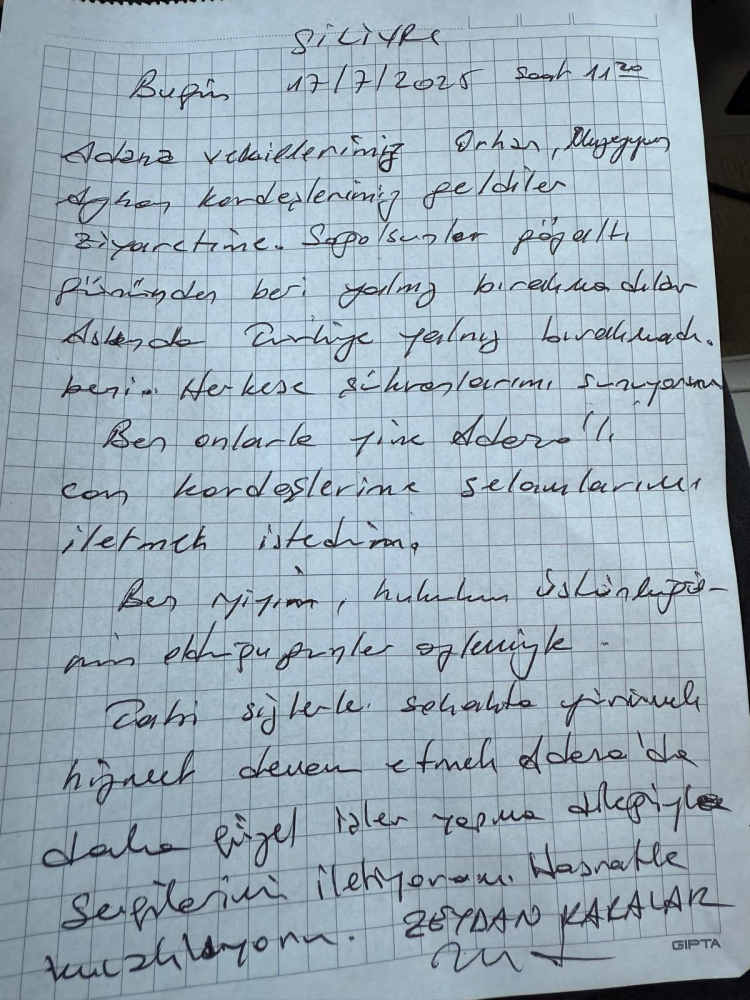 SİLİVRİ
Bugün 17/7/2025 saat 11 20
Adana vekillerimiz Orhan, Müzeyyen
Ayhan kardeşlerimiz geldiler
ziyaretime. Sağolsunlar gözaltı
gününden beri yalnız bırakmadılar
Aslında Türkiye yalnız bırakmadı.
beni.. Herkese şükranlarımı sunuyorum
Ben onlarla yine Adana'lı
can kardeşlerime selamlarımı
iletmek istedim.
Ben iyiyim, hukukun üstünlüğü-
nün günler özlemiyle
Tabi sizlerle sokakta yürümek
hizmet devam etmek Adana'da
daha güzel işler yapma dileğiyle
Sevgilerimi iletiyorum. Hasretle
kucaklıyorum. ZEYDAN KARALAR
GIPTA